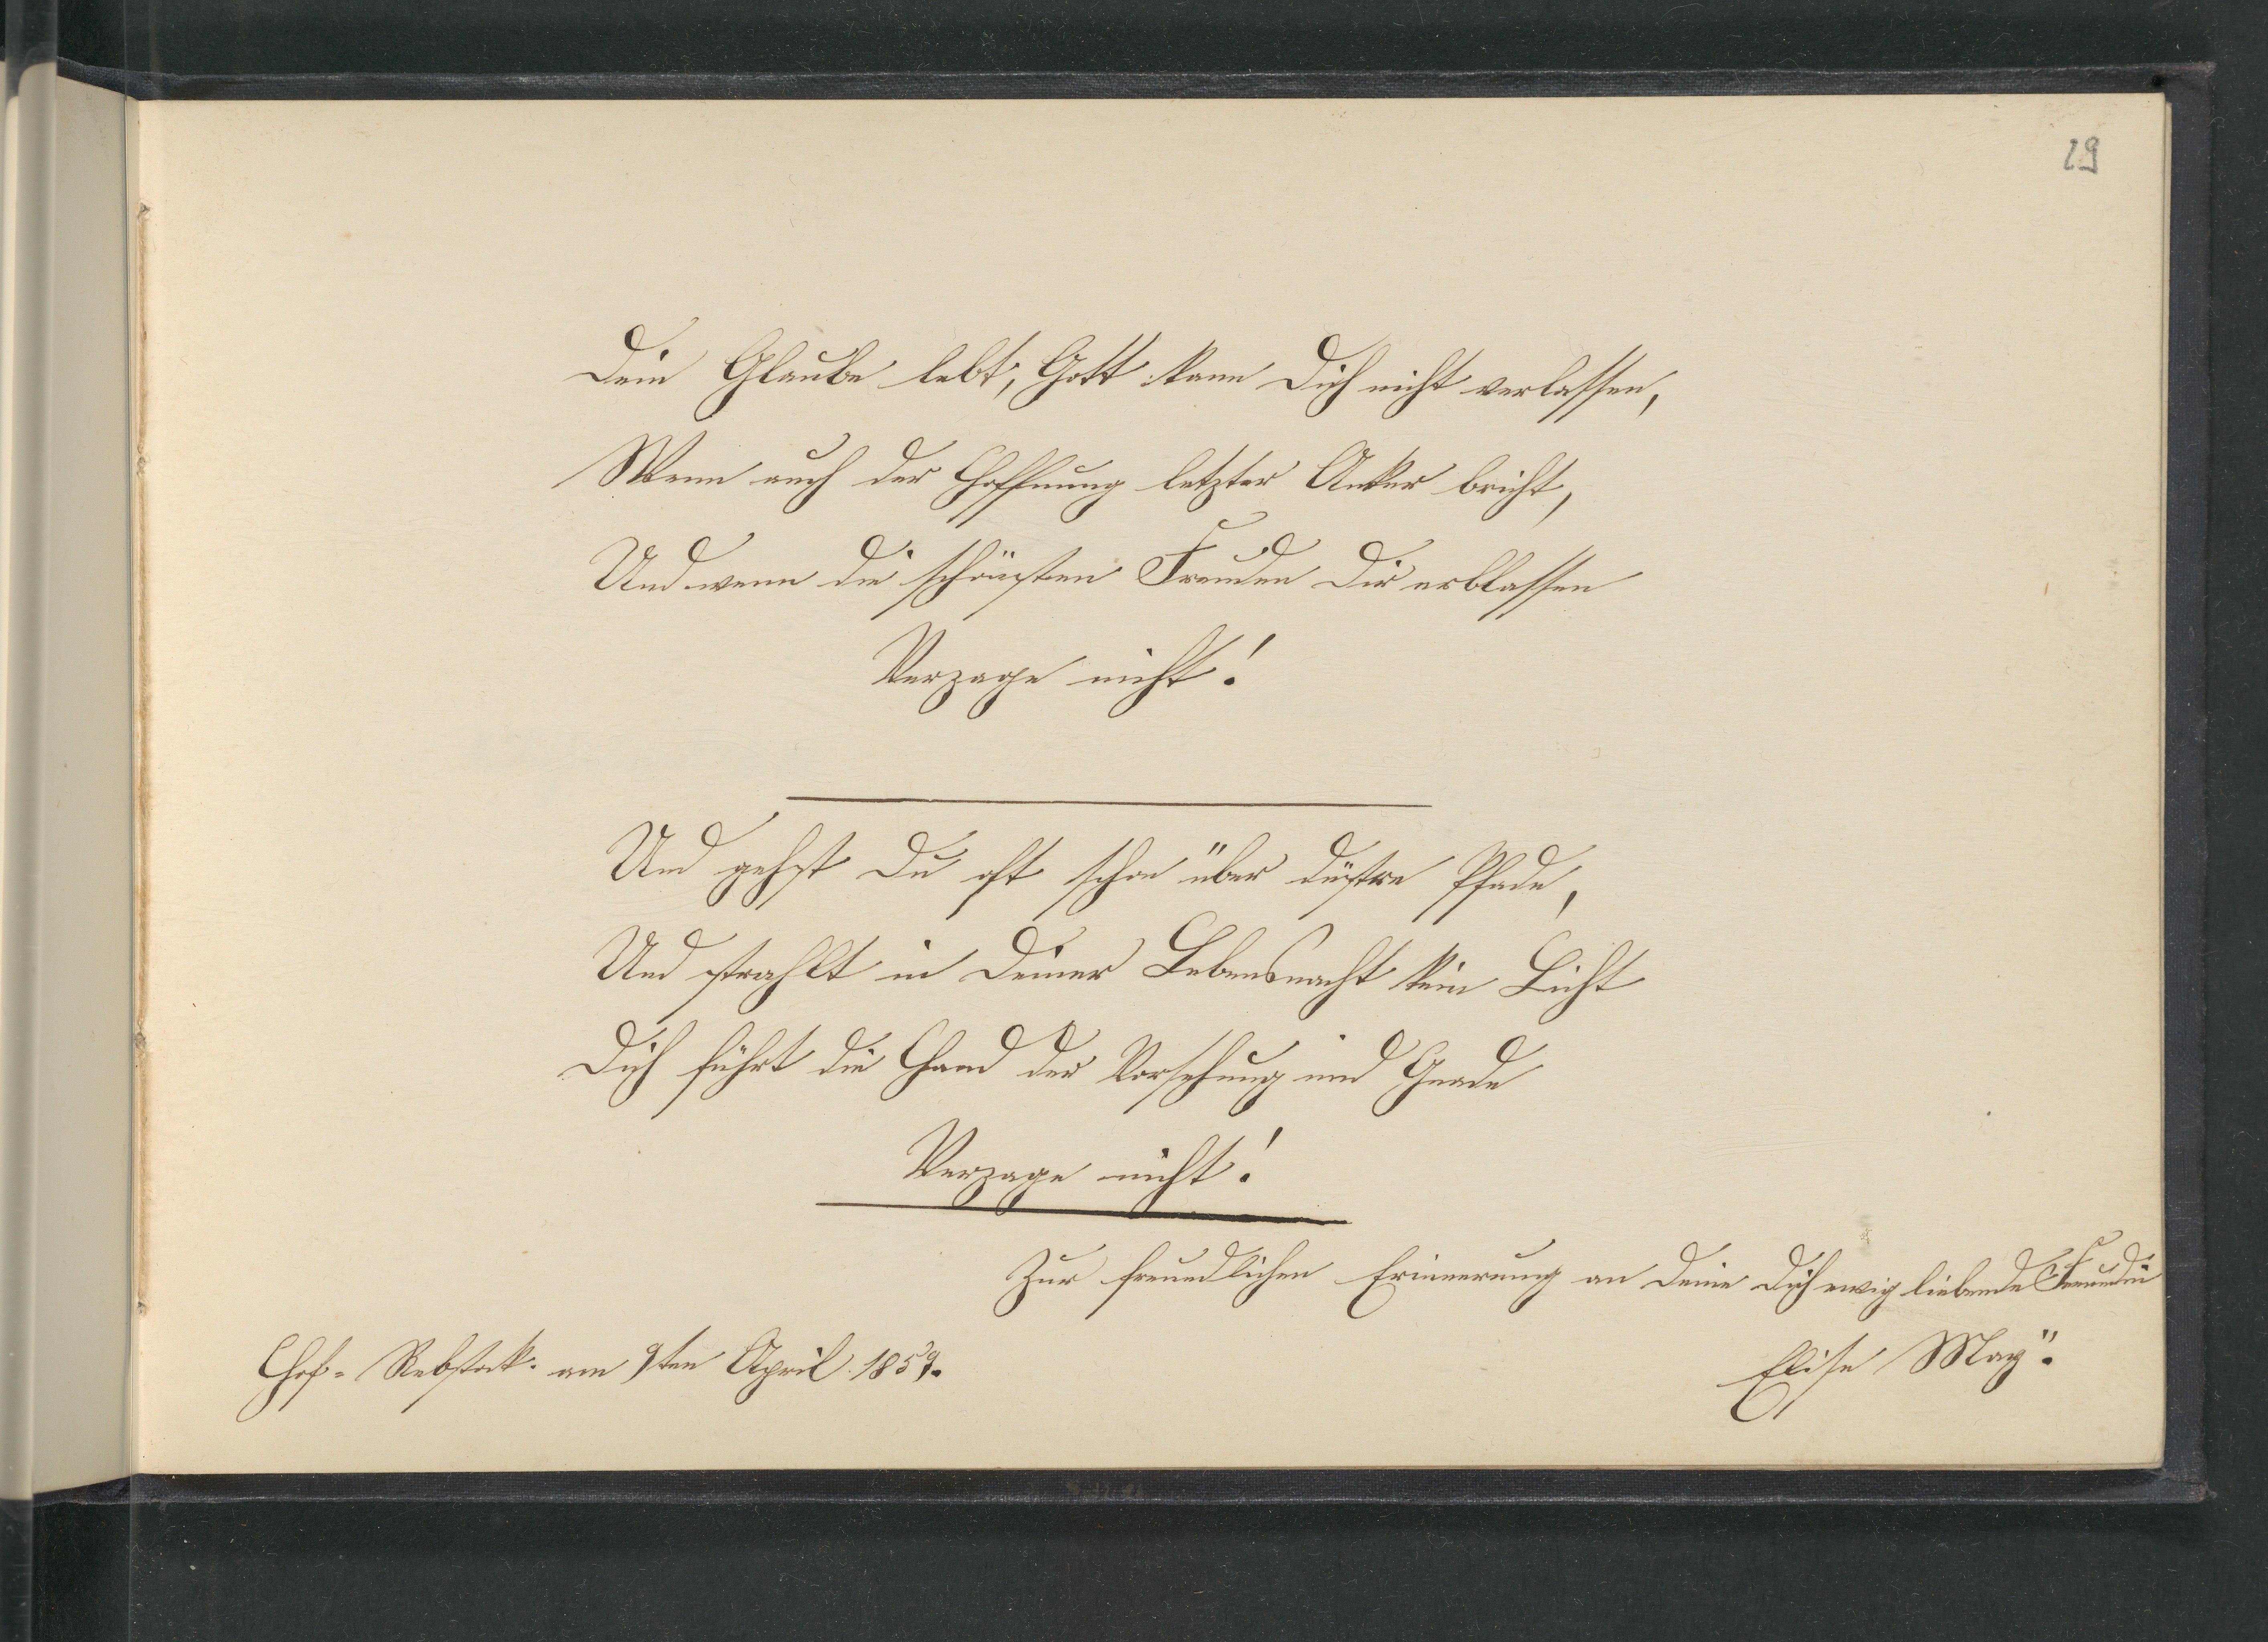 29
Dein Glaube lebt, Gott kann Dich nicht verlassen,
Wenn auch der Hoffnung letzter Anker bricht,
Und wenn die schönsten Freuden Dir erblassen
Verzage nicht!
Und gehst Du oft schon über düstre Pfade,
Und strahlt in Deiner Lebensnacht kein Licht
Dich führt die Hand der Vorsehung und Gnade
Verzage nicht!
Zur freundlichen Erinnerung an Deine Dich ewig liebende Freundin
Hof-Rebstok. am 9ten April. 1859.
Elise Maÿ.